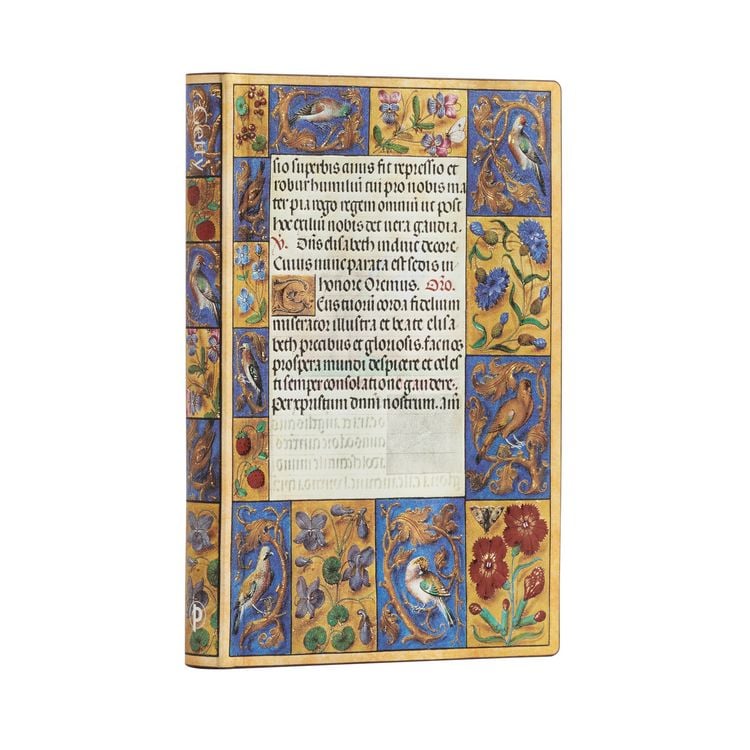 Getty
sio superbis anus fit repressio et
robur humiliū tui pro nobis ma
ter pia rogo regem omniū ut post
hoc exiliū nobis det vera gaudia.
V. Dn̄s elisabeth induit decore.
Cuius nunc parata est sedis in
honore Oremus. Oro.
Deus tuorū corda fidelium
miserator illustra et beate elisa
beth precibus et gloriosis. fac nos
prospera mundi despicere et celes
ti semper consolatione gaudere.
Per xpristum dnm̄ nostrum. am̄
P